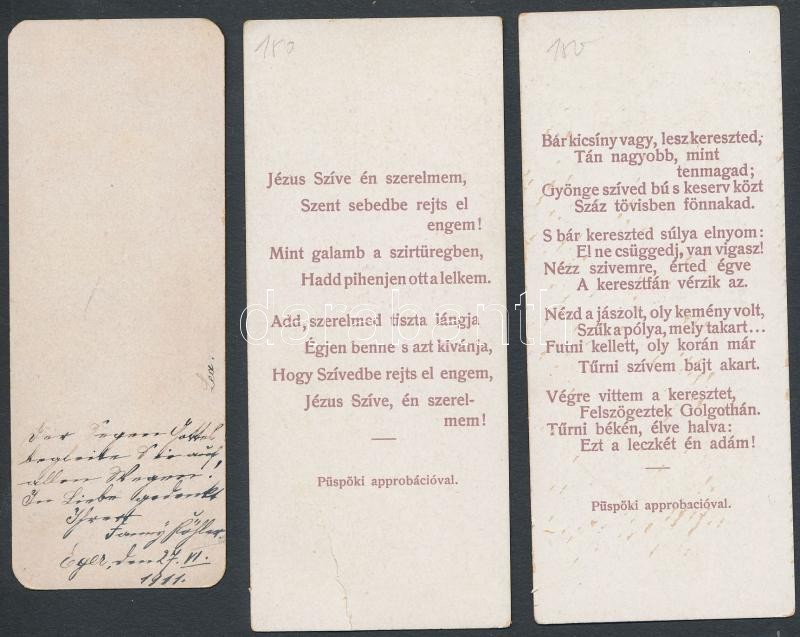 Der Segen Gottes
begleite Sie auf
allen Wegen!
In Liebe gedenkt
Ihrer
Fanny Köhler
Eger, den 27. VI.
1911.
180
Jézus Szíve én szerelmem,
Szent sebedbe rejts el
engem!
Mint galamb a szirtüregben,
Hadd pihenjen ott a lelkem.
Add, szerelmed tiszta lángja
Égjen benne s azt kivánja,
Hogy Szívedbe rejts el engem,
Jézus Szíve, én szerel-
mem!
Püspöki approbációval.
180
Bár kicsíny vagy, lesz kereszted,
Tán nagyobb, mint
tenmagad;
Gyönge szíved bú s keserv közt
Száz tövisben fönnakad.
S bár kereszted súlya elnyom:
El ne csüggedj, van vigasz!
Nézz szivemre, érted égve
A keresztfán vérzik az.
Nézd a jászolt, oly kemény volt,
Szűk a pólya, mely takart...
Futni kellett, oly korán már
Tűrni szívem bajt akart.
Végre vittem a keresztet,
Felszögeztek Golgothán.
Tűrni békén, élve halva:
Ezt a leczkét én adám!
Püspöki approbacióval.
darabanth